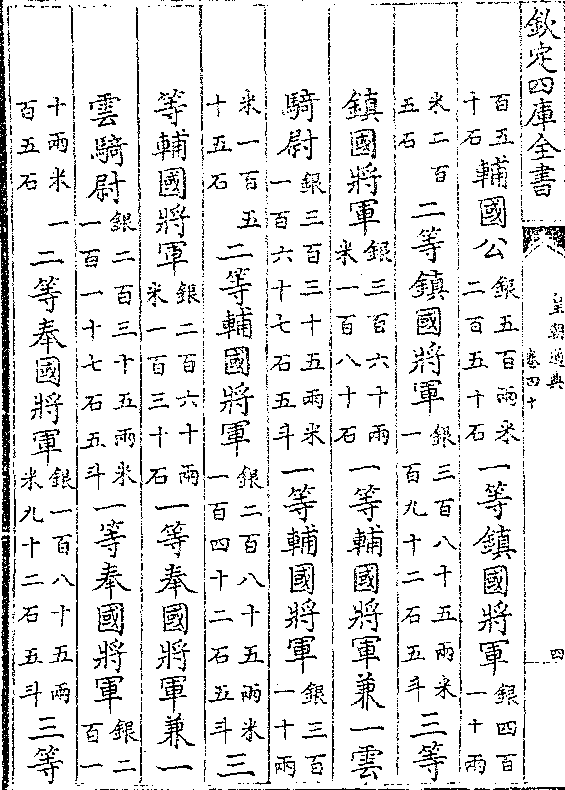 欽定四庫全書
皇朝通典
卷四十
四
百五十石輔國公銀五百兩米二百五十石一等鎮國將軍銀四百一十兩
米二百五石二等鎮國將軍銀三百八十五兩米一百九十二石五斗三等
鎮國將軍銀三百六十兩米一百八十石一等輔國將軍兼一雲
騎尉銀三百三十五兩米一百六十七石五斗一等輔國將軍銀三百一十兩
米一百五十五石二等輔國將軍銀二百八十五兩米一百四十二石五斗三
等輔國將軍銀二百六十兩米一百三十石一等奉國將軍兼一
雲騎尉銀二百三十五兩米一百一十七石五斗一等奉國將軍銀二百一
十兩米一百五石二等奉國將軍銀一百八十五兩米九十二石五斗三等